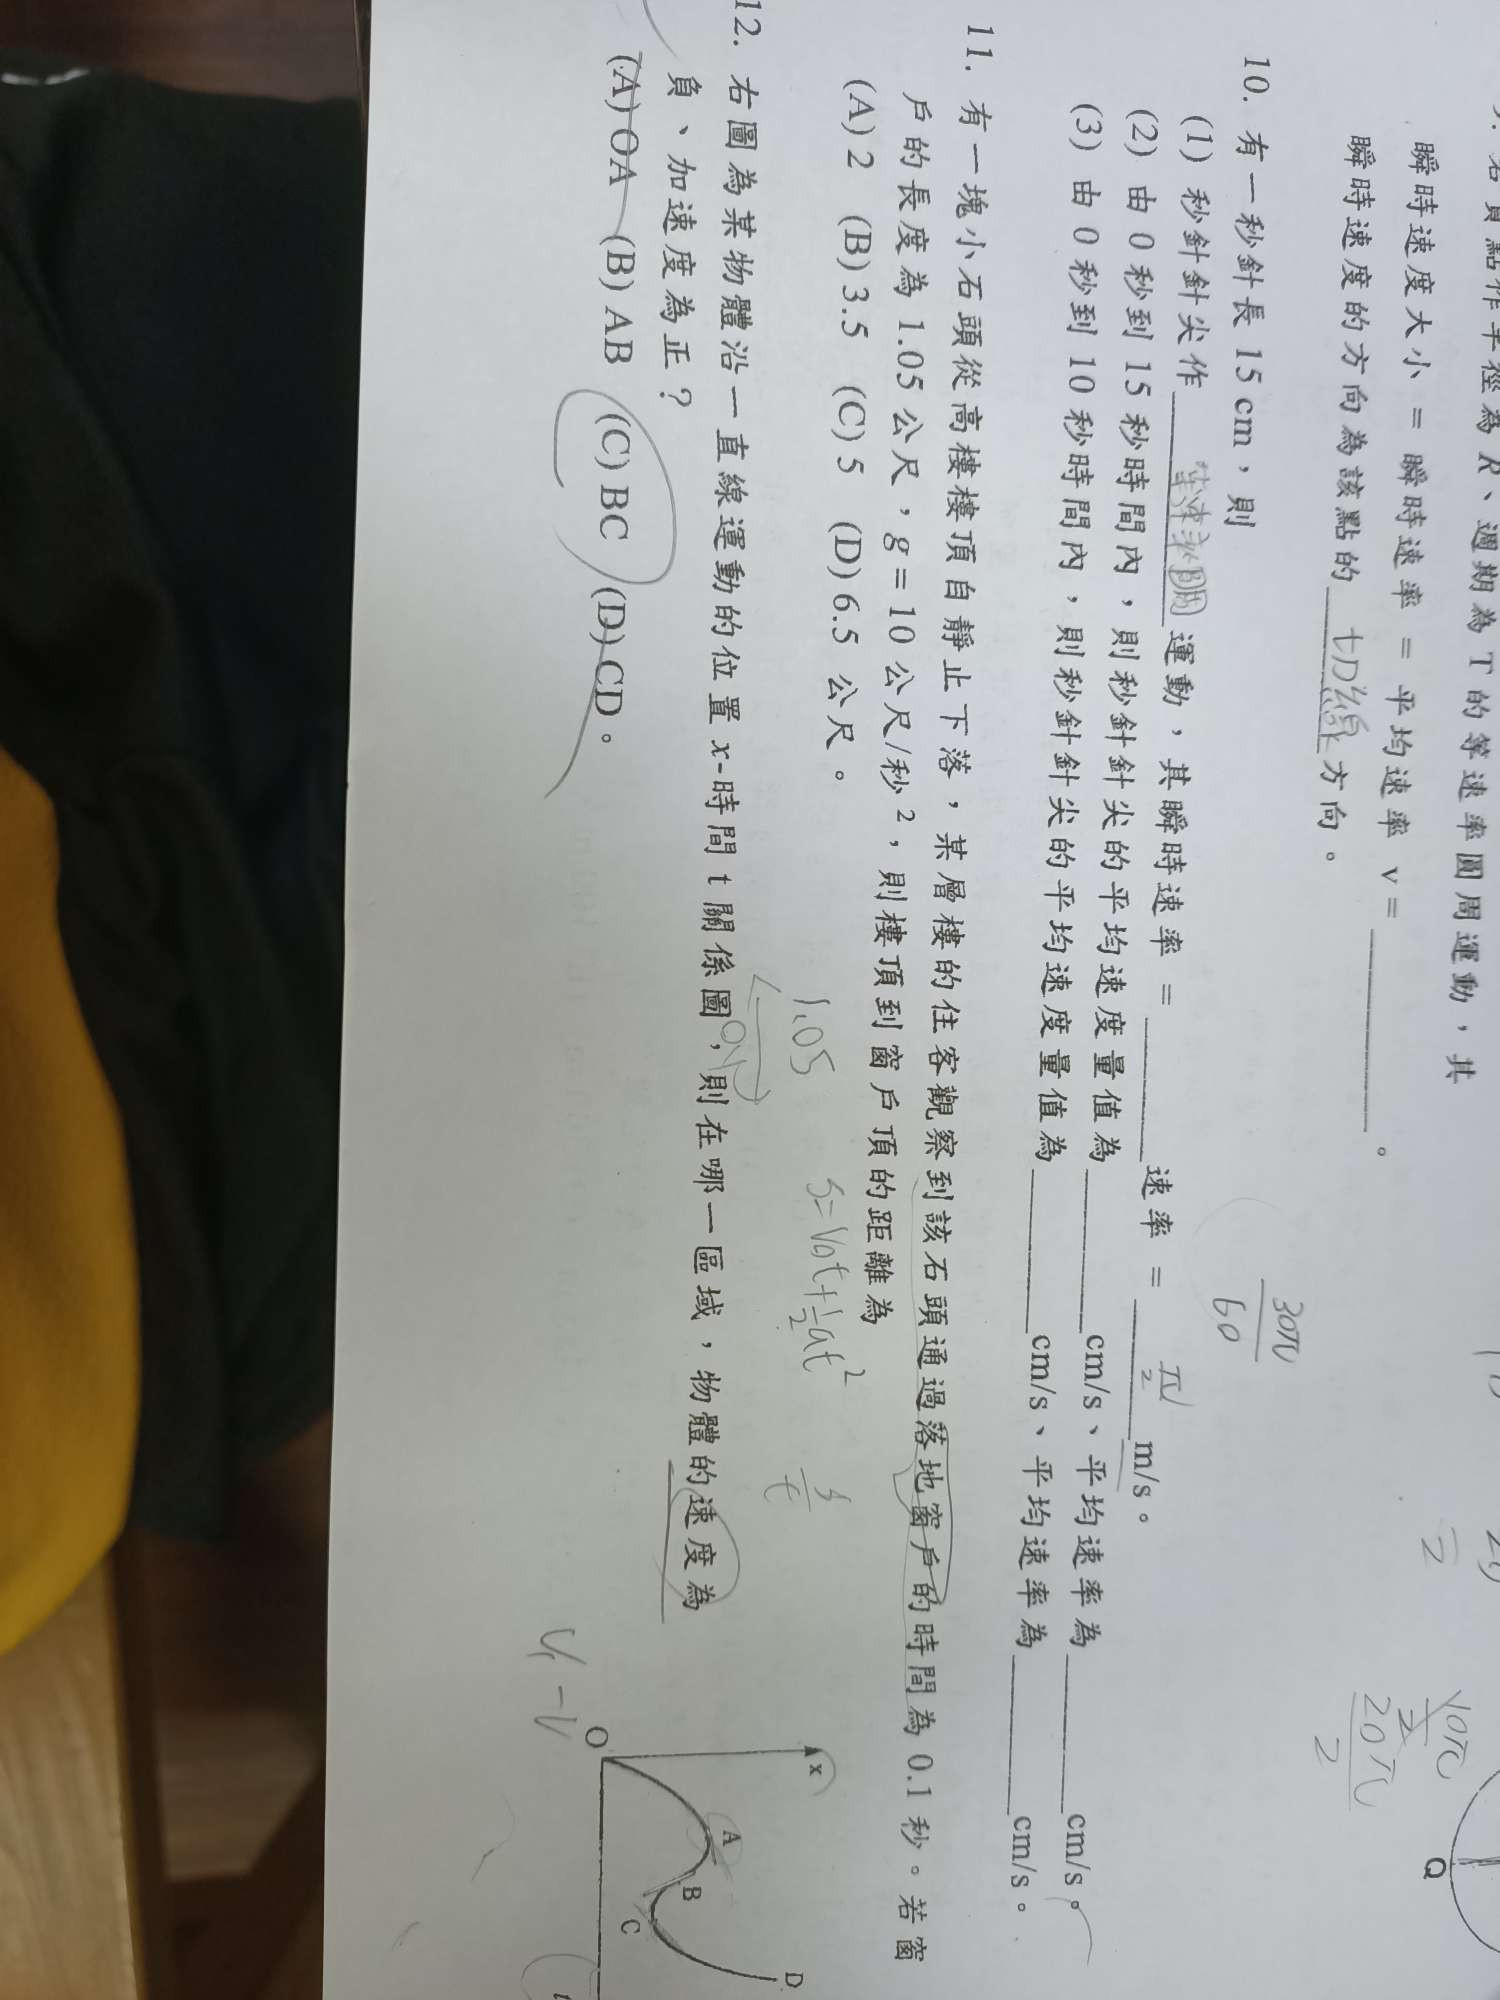 9. 若質點作半徑為 R、週期為 T 的等速率圓周運動，其
瞬時速度大小 = 瞬時速率 = 平均速率 v = ________。
瞬時速度的方向為該點的 切線 方向。
Q
10π
2
20π
2
10. 有一秒針長 15 cm，則
30π
60
(1) 秒針針尖作 等速率圓周 運動，其瞬時速率 = ________ 速率 = π/2 m/s。
(2) 由 0 秒到 15 秒時間內，則秒針針尖的平均速度量值為 ________ cm/s、平均速率為 ________ cm/s。
(3) 由 0 秒到 10 秒時間內，則秒針針尖的平均速度量值為 ________ cm/s、平均速率為 ________ cm/s。
11. 有一塊小石頭從高樓樓頂自靜止下落，某層樓的住客觀察到該石頭通過落地窗戶的時間為 0.1 秒。若窗
戶的長度為 1.05 公尺，g = 10 公尺/秒²，則樓頂到窗戶頂的距離為
(A) 2 (B) 3.5 (C) 5 (D) 6.5 公尺。
1.05 S=V0t+½at² S/t
12. 右圖為某物體沿一直線運動的位置 x-時間 t 關係圖，則在哪一區域，物體的速度為
負、加速度為正？
(A) OA (B) AB (C) BC (D) CD。
x
A
B
C
D
O
t